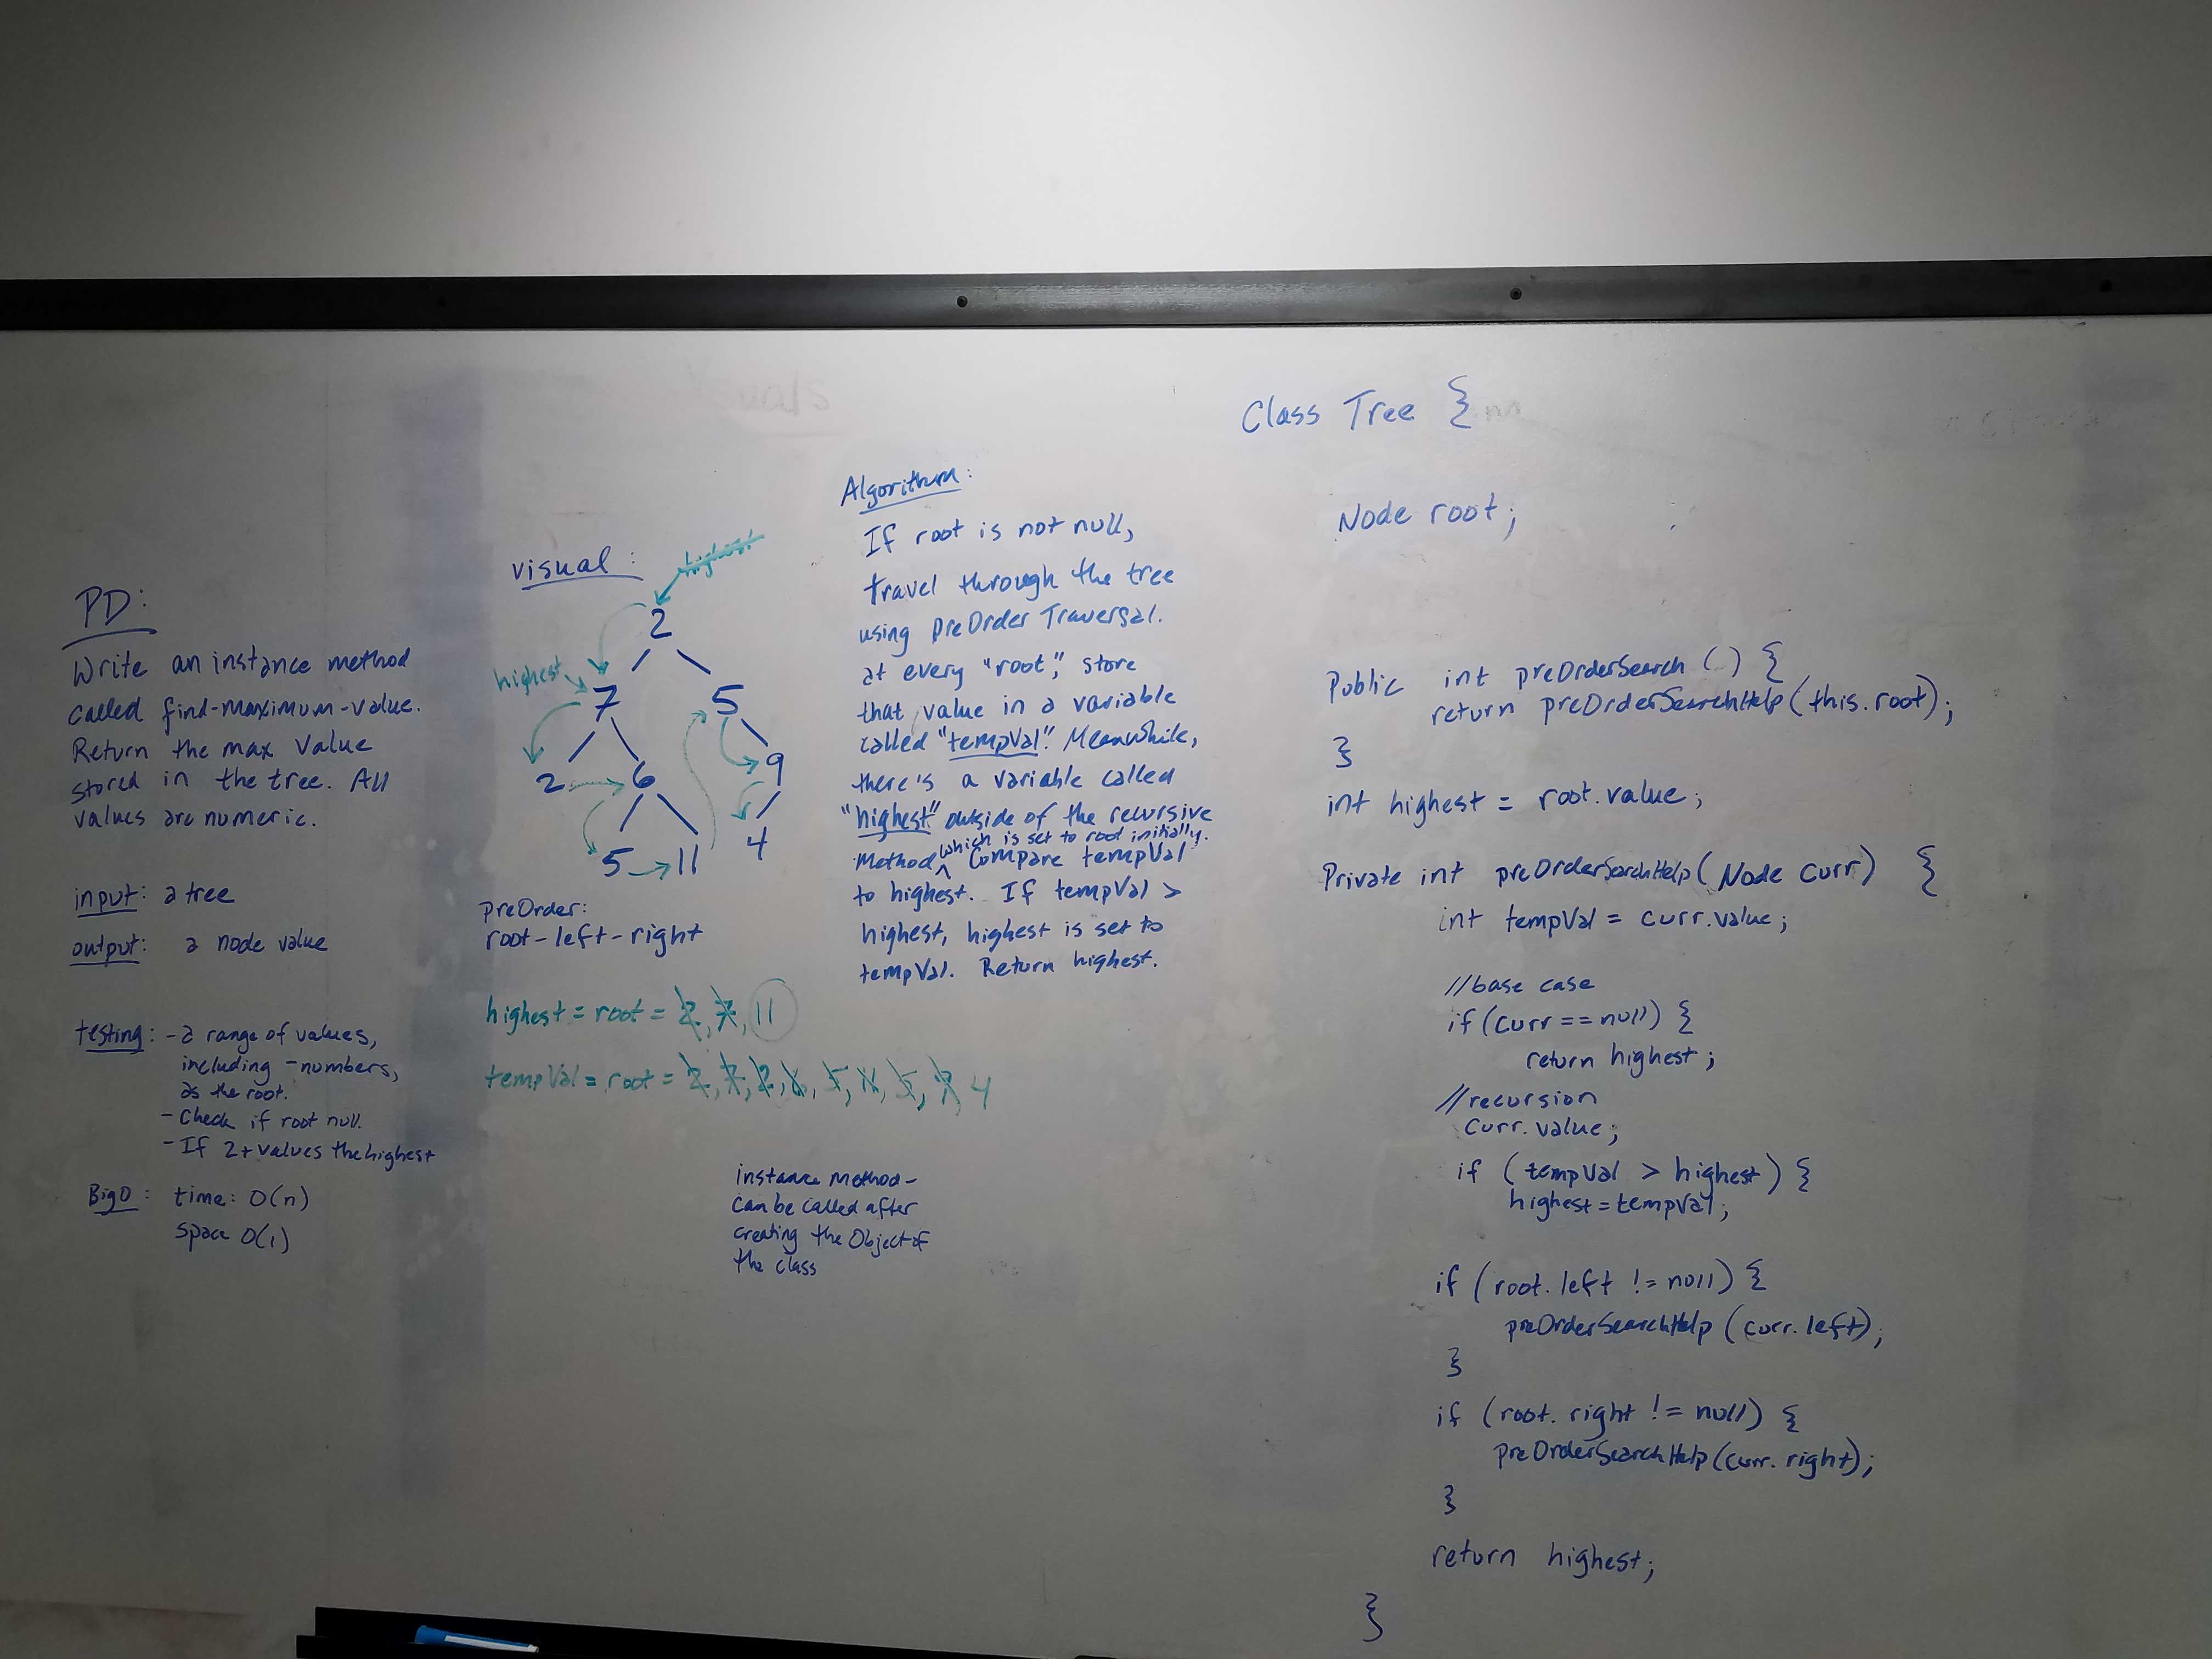 PD:
Write an instance method
called find-maximum-value.
Return the max value
stored in the tree. All
values are numeric.
input: a tree
output: a node value
testing: - a range of values,
including -numbers,
as the root.
- Check if root null.
- If 2+ values the highest
BigO: time: O(n)
space O(1)
visual:
highest
2
highest
7 5
2 6 9
5 11 4
preOrder:
root-left-right
highest = root = 2, 7, 11
tempVal = root = 2, 7, 2, 6, 5, 11, 5, 9, 4
instance method -
can be called after
creating the Object of
the class
Algorithm:
If root is not null,
travel through the tree
using preOrder Traversal.
at every "root", store
that value in a variable
called "tempVal". Meanwhile,
there's a variable called
"highest" outside of the recursive
which is set to root initially.
method ^ Compare tempVal
to highest. If tempVal >
highest, highest is set to
tempVal. Return highest.
Class Tree {
Node root;
Public int preOrderSearch () {
return preOrderSearchHelp(this.root);
}
int highest = root.value;
Private int preOrderSearchHelp(Node curr) {
int tempVal = curr.value;
//base case
if(curr == null) {
return highest;
//recursion
curr.value;
if (tempVal > highest) {
highest = tempVal;
if (root.left != null) {
preOrderSearchHelp (curr.left);
}
if (root.right != null) {
preOrderSearchHelp (curr.right);
}
return highest;
}